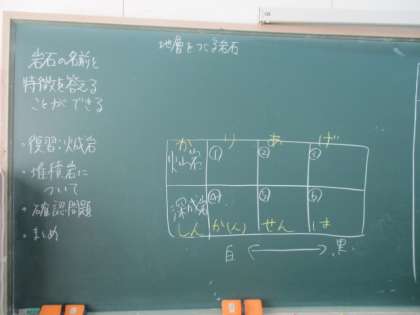 地層をつくる岩石
岩石の名前と
特徴を答える
ことができる
・復習:火成岩
・堆積岩に
ついて
・確認問題
・まとめ
か り あ げ
火山岩 ① ② ③
深成岩 ④ ⑤ ⑥
しん か(ん) せん は
白 ⟷ 黒